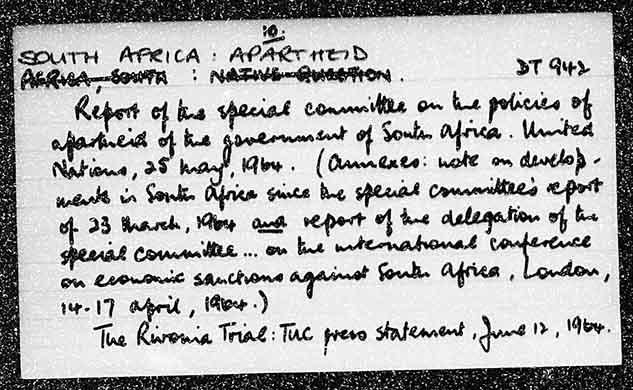 10.
SOUTH AFRICA : APARTHEID
AFRICA, SOUTH : NATIVE QUESTION. DT 942
Report of the special committee on the policies of
apartheid of the government of South Africa. United
Nations, 25 May, 1964. (Annexes: note on develop-
ments in South Africa since the special committee's report
of 23 March, 1964 and report of the delegation of the
special committee ... on the international conference
on economic sanctions against South Africa, London,
14-17 April, 1964.)
The Rivonia Trial: TUC press statement, June 12, 1964.